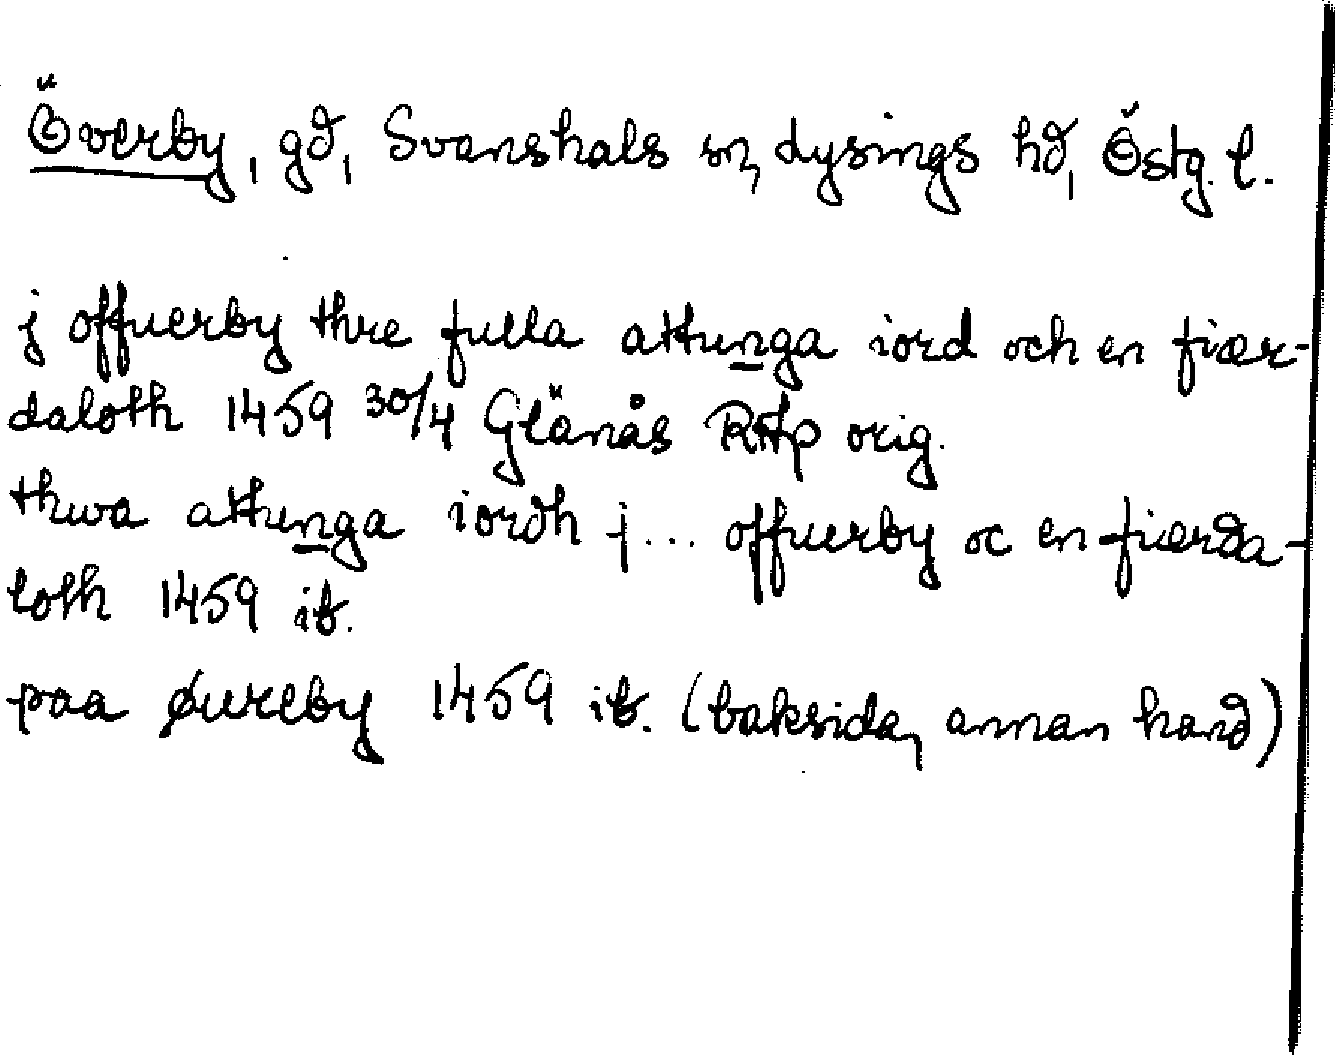 Överby, gd, Svanshals sn, Lysings hd, Östg. l.
j offuerby thre fulla attunga iord och en fiær-
daloth 1459 30/4 Glänås RAp orig.
thwa attunga iordh j... offuerby oc en fiærda-
loth 1459 ib.
paa øureby 1459 ib. (baksida, annan hand)